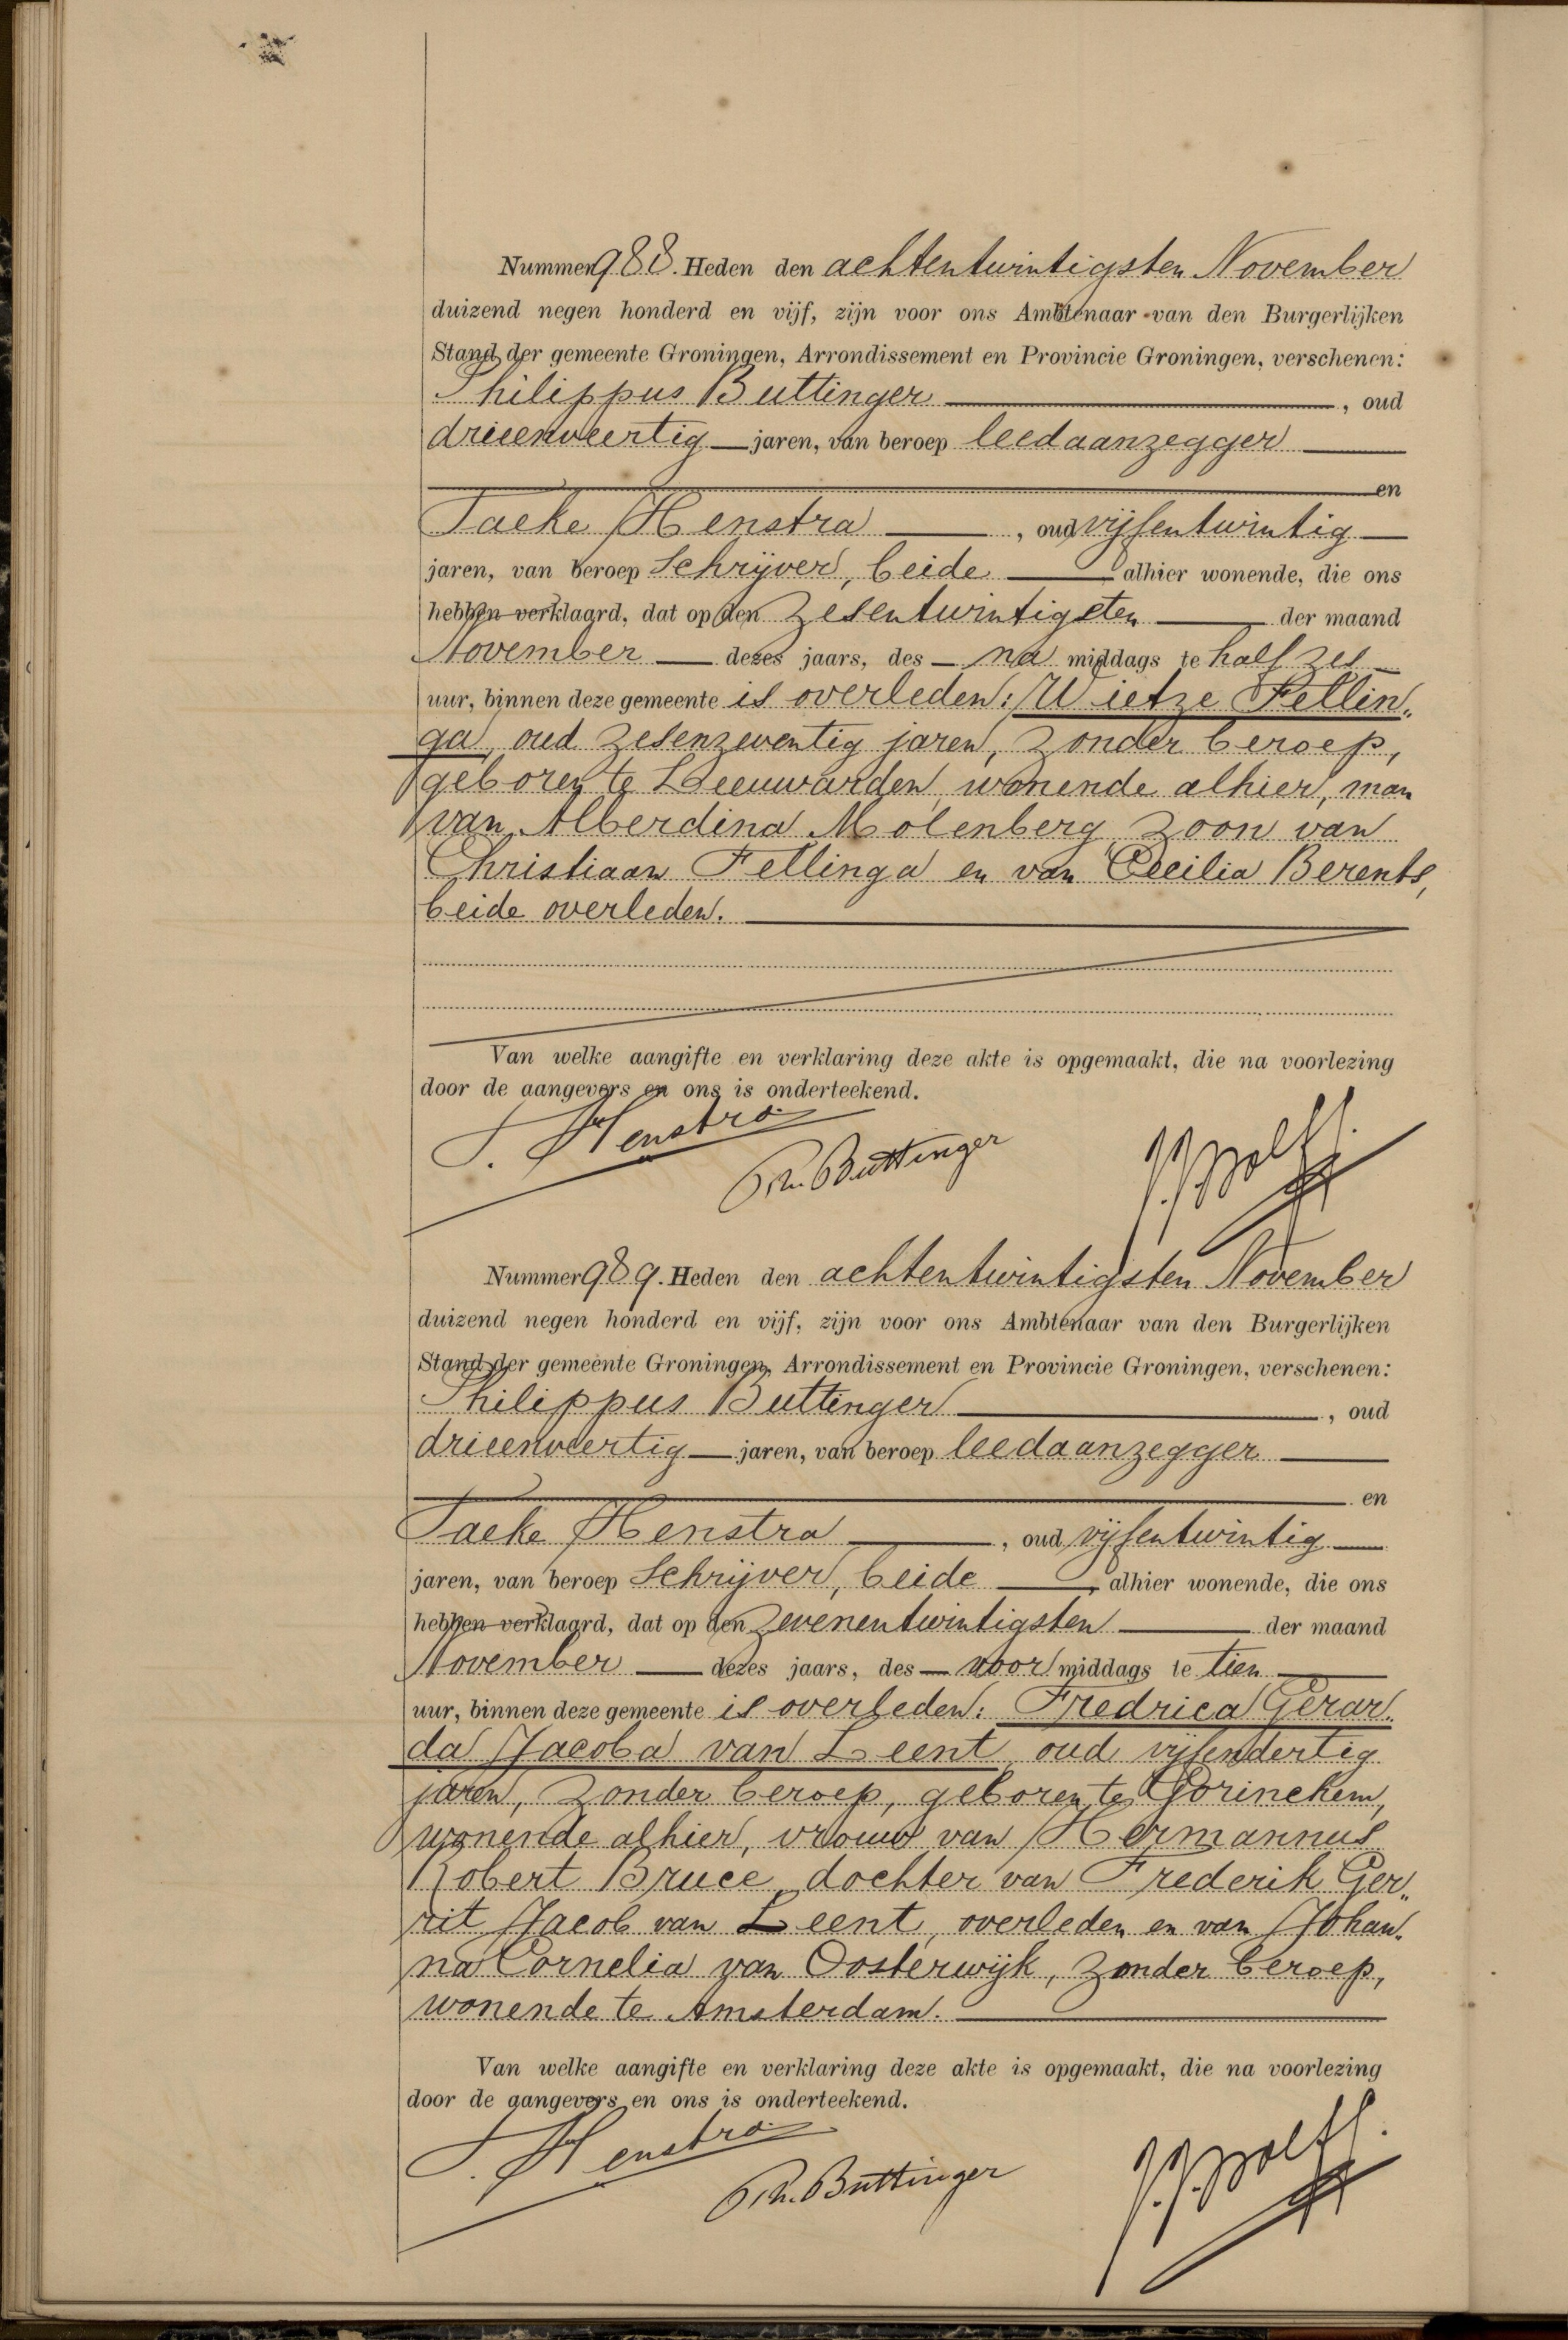 Nummer 988. Heden den achtentwintigsten November
duizend negen honderd en vijf, zijn voor ons Ambtenaar van den Burgerlijken
Stand der gemeente Groningen, Arrondissement en Provincie Groningen, verschenen:
Philippus Buttinger, oud
drieenveertig jaren, van beroep leedaanzegger
en
Taeke Henstra, oud vijfentwintig
jaren, van beroep Schrijver, beide alhier wonende, die ons
hebben verklaard, dat op den zesentwintigsten der maand
November dezes jaars, des na middags te half zes
uur, binnen deze gemeente is overleden: Wietze Fellin„
ga, oud zesenzeventig jaren, zonder beroep,
geboren te Leeuwarden, wonende alhier, man
van Alberdina Molenberg, zoon van
Christiaan Fellinga en van Cecilia Berents,
beide overleden.
Van welke aangifte en verklaring deze akte is opgemaakt, die na voorlezing
door de aangevers en ons is onderteekend.
T. Henstra
Ph. Buttinger
Nummer 989. Heden den achtentwintigsten November
duizend negen honderd en vijf, zijn voor ons Ambtenaar van den Burgerlijken
Stand der gemeente Groningen, Arrondissement en Provincie Groningen, verschenen:
Philippus Buttinger, oud
drieenveertig jaren, van beroep leedaanzegger
en
Taeke Henstra, oud vijfentwintig
jaren, van beroep Schrijver, beide, alhier wonende, die ons
hebben verklaard, dat op den zevenentwintigsten der maand
November dezes jaars, des voor middags te tien
uur, binnen deze gemeente is overleden: Fredrica Gerar„
da Jacoba van Leent, oud vijfendertig
jaren, zonder beroep, geboren te Gorinchem,
wonende alhier, vrouw van Hermannus
Robert Bruce, dochter van Frederik Ger„
rit Jacob van Leent, overleden en van Johan„
na Cornelia van Oosterwijk, zonder beroep,
wonende te Amsterdam.
Van welke aangifte en verklaring deze akte is opgemaakt, die na voorlezing
door de aangevers en ons is onderteekend.
T. Henstra
Ph. Buttinger